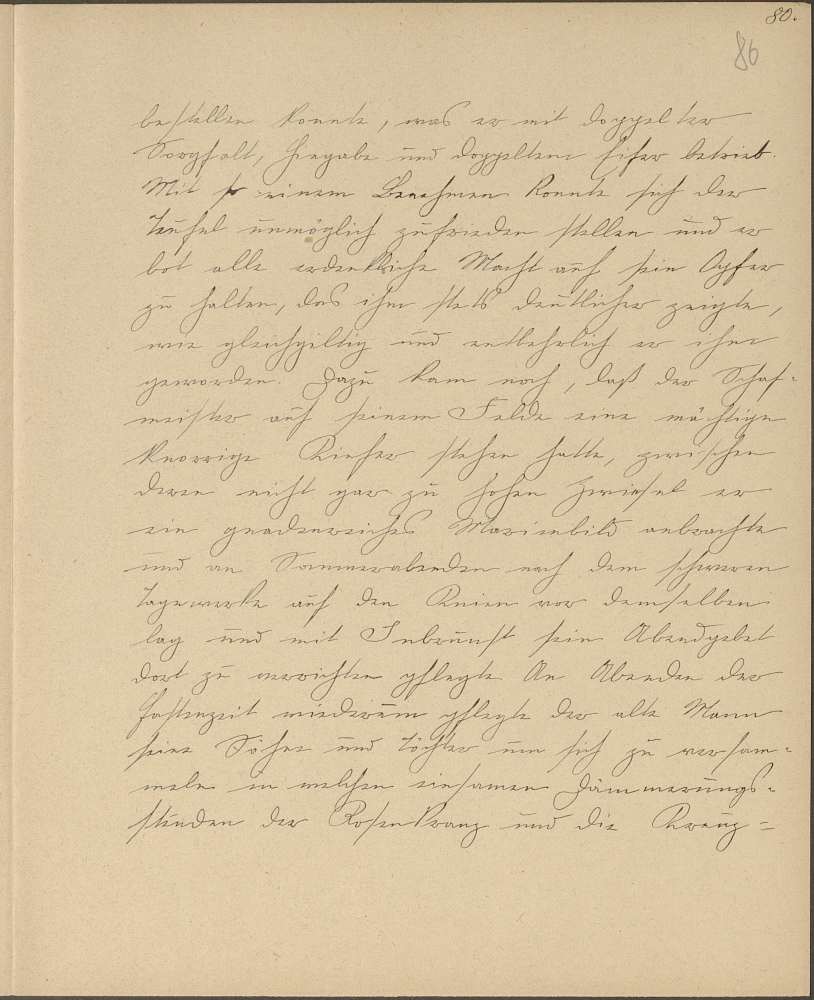 80.
86
bestellen konnte, was er mit doppelter
Sorgfalt, Hingabe und doppeltem Eifer betrieb.
Mit so einem Benehmen konnte sich der
Teufel unmöglich zufrieden stellen und er
bot alle erdenkliche Macht auf sein Opfer
zu halten, das ihm stets deutlicher zeigte,
wie gleichgiltig und entbehrlich er ihm
geworden. Dazu kam noch, daß der Schaf-
meister auf seinem Felde eine mächtige
knorrige Kiefer stehen hatte, zwischen
deren nicht gar zu hohen Zwiesel er
ein gnadenreiches Marienbild anbrachte
und an Sommerabenden nach dem schweren
Tagewerke auf den Knien vor demselben
lag und mit Inbrunst sein Abendgebet
dort zu verrichten pflegte An Abenden der
Fastenzeit wiederum pflegte der alte Mann
seine Söhne und Töchter um sich zu versam-
meln in welchen einsamen Dämmerungs-
stunden der Rosenkranz und die Kreuz-